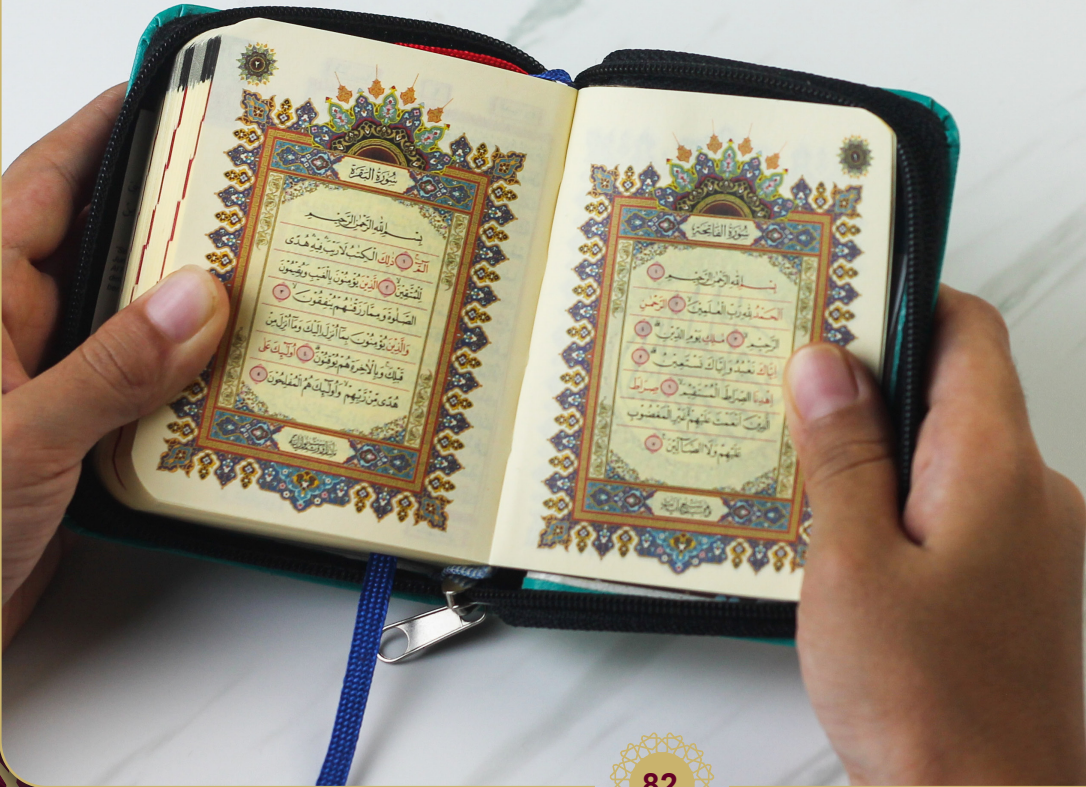 ١
سُورَةُ الفَاتِحَةِ
بِسْمِ اللَّهِ الرَّحْمَٰنِ الرَّحِيمِ ١
الْحَمْدُ لِلَّهِ رَبِّ الْعَٰلَمِينَ ٢ الرَّحْمَٰنِ
الرَّحِيمِ ٣ مَٰلِكِ يَوْمِ الدِّينِ ٤
إِيَّاكَ نَعْبُدُ وَإِيَّاكَ نَسْتَعِينُ ٥
اهْدِنَا الصِّرَاطَ الْمُسْتَقِيمَ ٦ صِرَاطَ
الَّذِينَ أَنْعَمْتَ عَلَيْهِمْ غَيْرِ الْمَغْضُوبِ
عَلَيْهِمْ وَلَا الضَّآلِّينَ ٧
٢
سُورَةُ البَقَرَةِ
بِسْمِ اللَّهِ الرَّحْمَٰنِ الرَّحِيمِ
الٓمٓ ١ ذَٰلِكَ الْكِتَٰبُ لَا رَيْبَ فِيهِ هُدًى
لِلْمُتَّقِينَ ٢ الَّذِينَ يُؤْمِنُونَ بِالْغَيْبِ وَيُقِيمُونَ
الصَّلَوٰةَ وَمِمَّا رَزَقْنَٰهُمْ يُنْفِقُونَ ٣
وَالَّذِينَ يُؤْمِنُونَ بِمَآ أُنْزِلَ إِلَيْكَ وَمَآ أُنْزِلَ مِنْ
قَبْلِكَ وَبِالْآخِرَةِ هُمْ يُوقِنُونَ ٤ أُولَٰٓئِكَ عَلَىٰ
هُدًى مِنْ رَبِّهِمْ وَأُولَٰٓئِكَ هُمُ الْمُفْلِحُونَ ٥
82